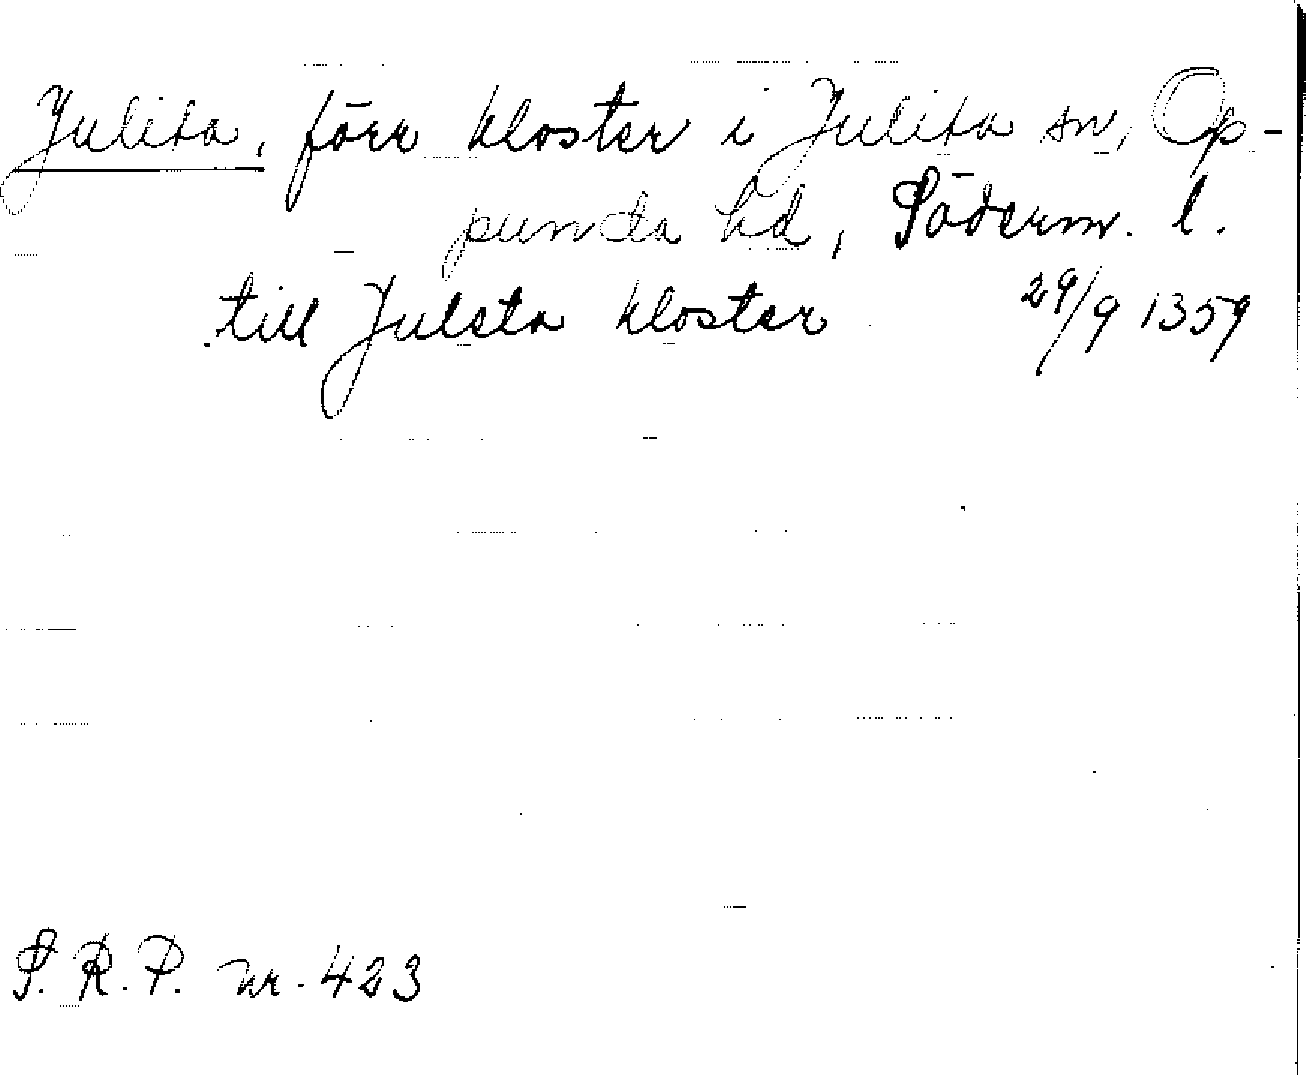 Julita, förr kloster i Julita sn, Op-
punda hd, Söderm. l.
till Juleta kloster 29/9 1359
S. R. P. nr. 423